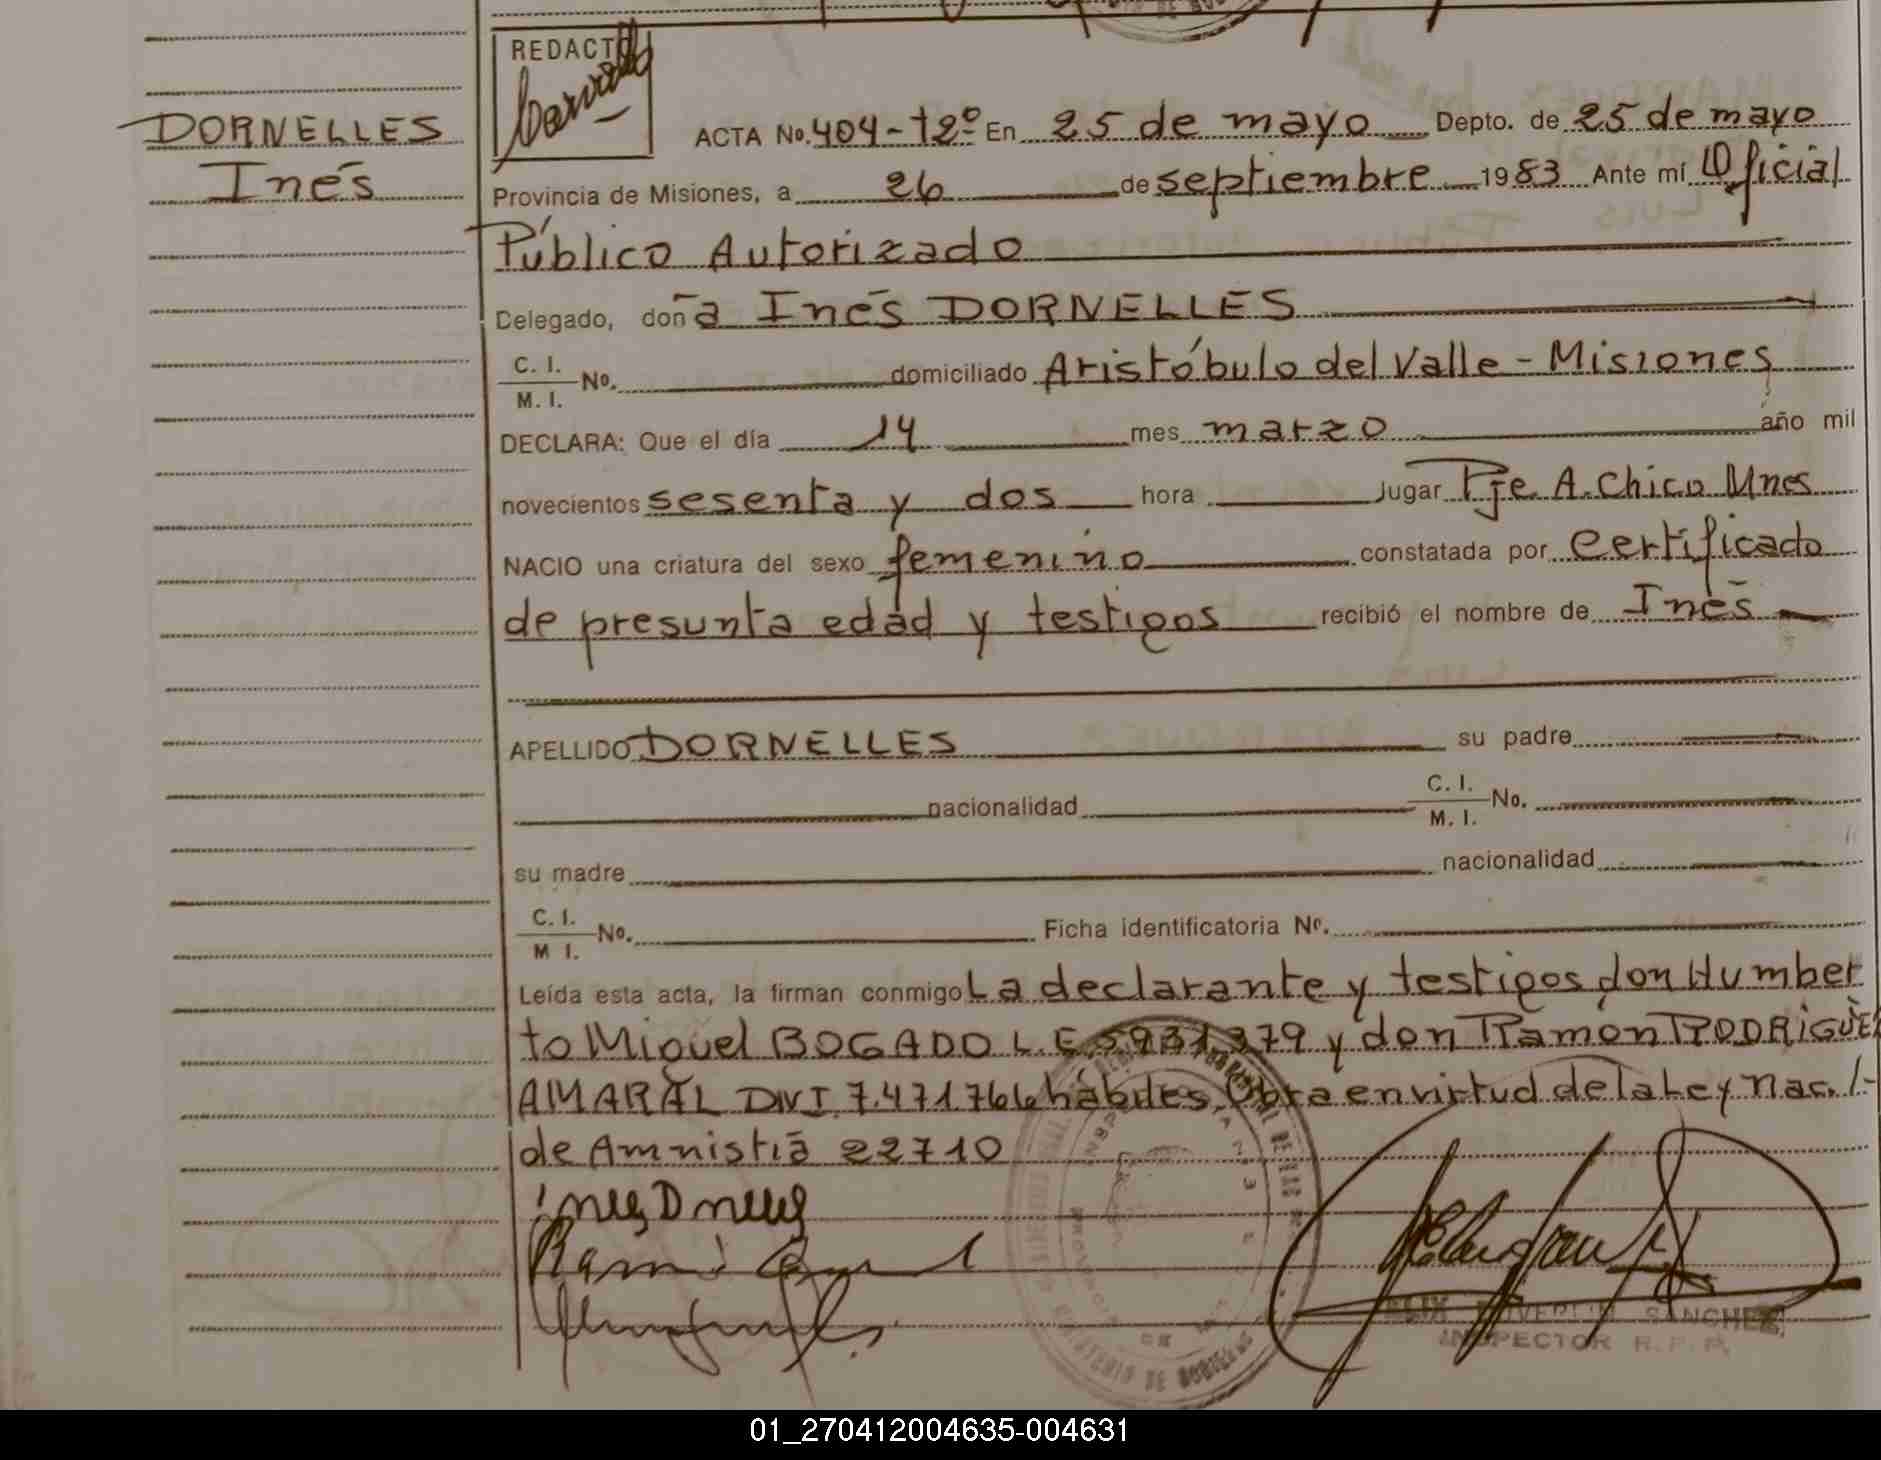 DORNELLES
Inés
REDACTÓ
ACTA No. 404-T2º En 25 de mayo Depto. de 25 de mayo
Provincia de Misiones, a 26 de septiembre 1983 Ante mí Oficial
Público Autorizado
Delegado, doña Inés DORNELLES
C. I.
M. I. No. domiciliado Aristóbulo del Valle - Misiones
DECLARA: Que el día 14 mes marzo año mil
novecientos sesenta y dos hora lugar Pje A. Chico Mnes
NACIO una criatura del sexo femenino constatada por certificado
de presunta edad y testigos recibió el nombre de Inés
APELLIDO DORNELLES su padre
nacionalidad C. I.
M. I. No.
su madre nacionalidad
C. I.
M I. No. Ficha identificatoria Nº.
Leída esta acta, la firman conmigo La declarante y testigos don Humber
to Miguel BOGADO L.E. 5931379 y don Ramón RODRIGUEZ
AMARAL DNI 7.471.766 hábiles. Obra en virtud de la Ley Nac./-
de Amnistía 22710
SANCHEZ
INSPECTOR R.P.P.
01_270412004635-004631